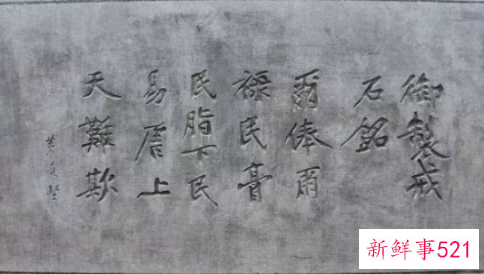 御製戒
石銘
爾俸爾
祿民膏
民脂下民
易虐上
天難欺
黄庭堅
新鲜事521